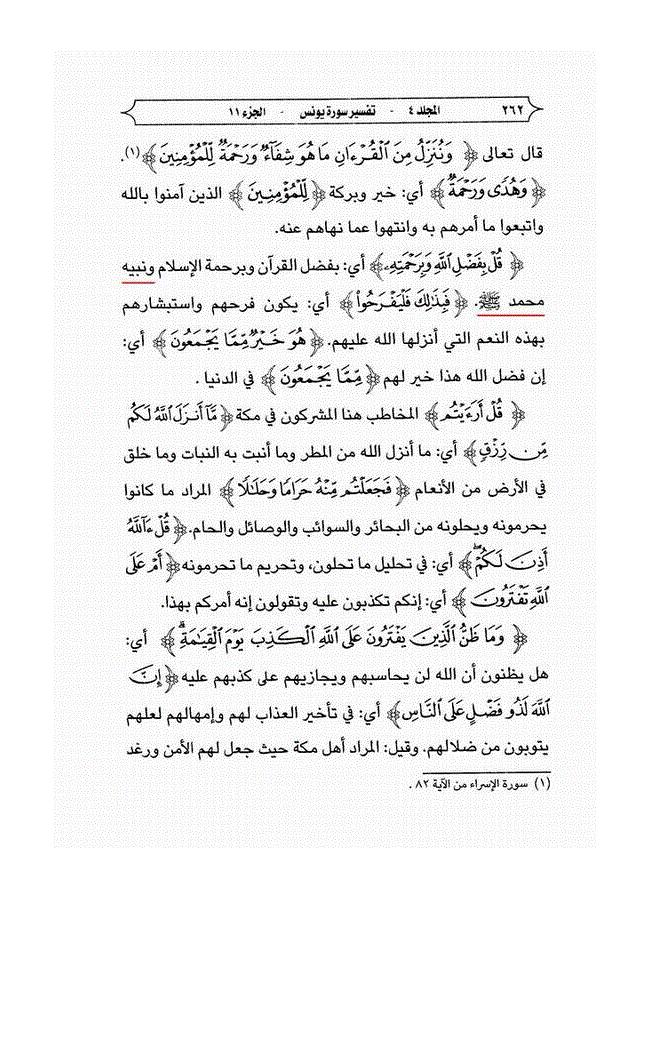 ٢٦٢ المجلد ٤ - تفسير سورة يونس - الجزء ١١
قال تعالى ﴿ وَنُنَزِّلُ مِنَ ٱلْقُرْءَانِ مَا هُوَ شِفَآءٌ وَرَحْمَةٌ لِّلْمُؤْمِنِينَ ﴾(١).
﴿ وَهُدًى وَرَحْمَةٌ ﴾ أي: خير وبركة ﴿ لِّلْمُؤْمِنِينَ ﴾ الذين آمنوا بالله
واتبعوا ما أمرهم به وانتهوا عما نهاهم عنه.
﴿ قُلْ بِفَضْلِ ٱللَّهِ وَبِرَحْمَتِهِۦ ﴾ أي: بفضل القرآن وبرحمة الإسلام ونبيه
محمد ﷺ. ﴿ فَبِذَٰلِكَ فَلْيَفْرَحُوا۟ ﴾ أي: يكون فرحهم واستبشارهم
بهذه النعم التي أنزلها الله عليهم. ﴿ هُوَ خَيْرٌ مِّمَّا يَجْمَعُونَ ﴾ أي:
إن فضل الله هذا خير لهم ﴿ مِّمَّا يَجْمَعُونَ ﴾ في الدنيا .
﴿ قُلْ أَرَءَيْتُم ﴾ المخاطب هنا المشركون في مكة ﴿ مَّآ أَنزَلَ ٱللَّهُ لَكُم
مِّن رِّزْقٍ ﴾ أي: ما أنزل الله من المطر وما أنبت به النبات وما خلق
في الأرض من الأنعام ﴿ فَجَعَلْتُم مِّنْهُ حَرَامًا وَحَلَٰلًا ﴾ المراد ما كانوا
يحرمونه ويحلونه من البحائر والسوائب والوصائل والحام. ﴿ قُلْ ءَآللَّهُ
أَذِنَ لَكُمْ ۖ ﴾ أي: في تحليل ما تحلون، وتحريم ما تحرمونه ﴿ أَمْ عَلَى
ٱللَّهِ تَفْتَرُونَ ﴾ أي: إنكم تكذبون عليه وتقولون إنه أمركم بهذا.
﴿ وَمَا ظَنُّ ٱلَّذِينَ يَفْتَرُونَ عَلَى ٱللَّهِ ٱلْكَذِبَ يَوْمَ ٱلْقِيَٰمَةِ ۗ ﴾ أي:
هل يظنون أن الله لن يحاسبهم ويجازيهم على كذبهم عليه ﴿ إِنَّ
ٱللَّهَ لَذُو فَضْلٍ عَلَى ٱلنَّاسِ ﴾ أي: في تأخير العذاب لهم وإمهالهم لعلهم
يتوبون من ضلالهم. وقيل: المراد أهل مكة حيث جعل لهم الأمن ورغد
(١) سورة الإسراء من الآية ٨٢ .